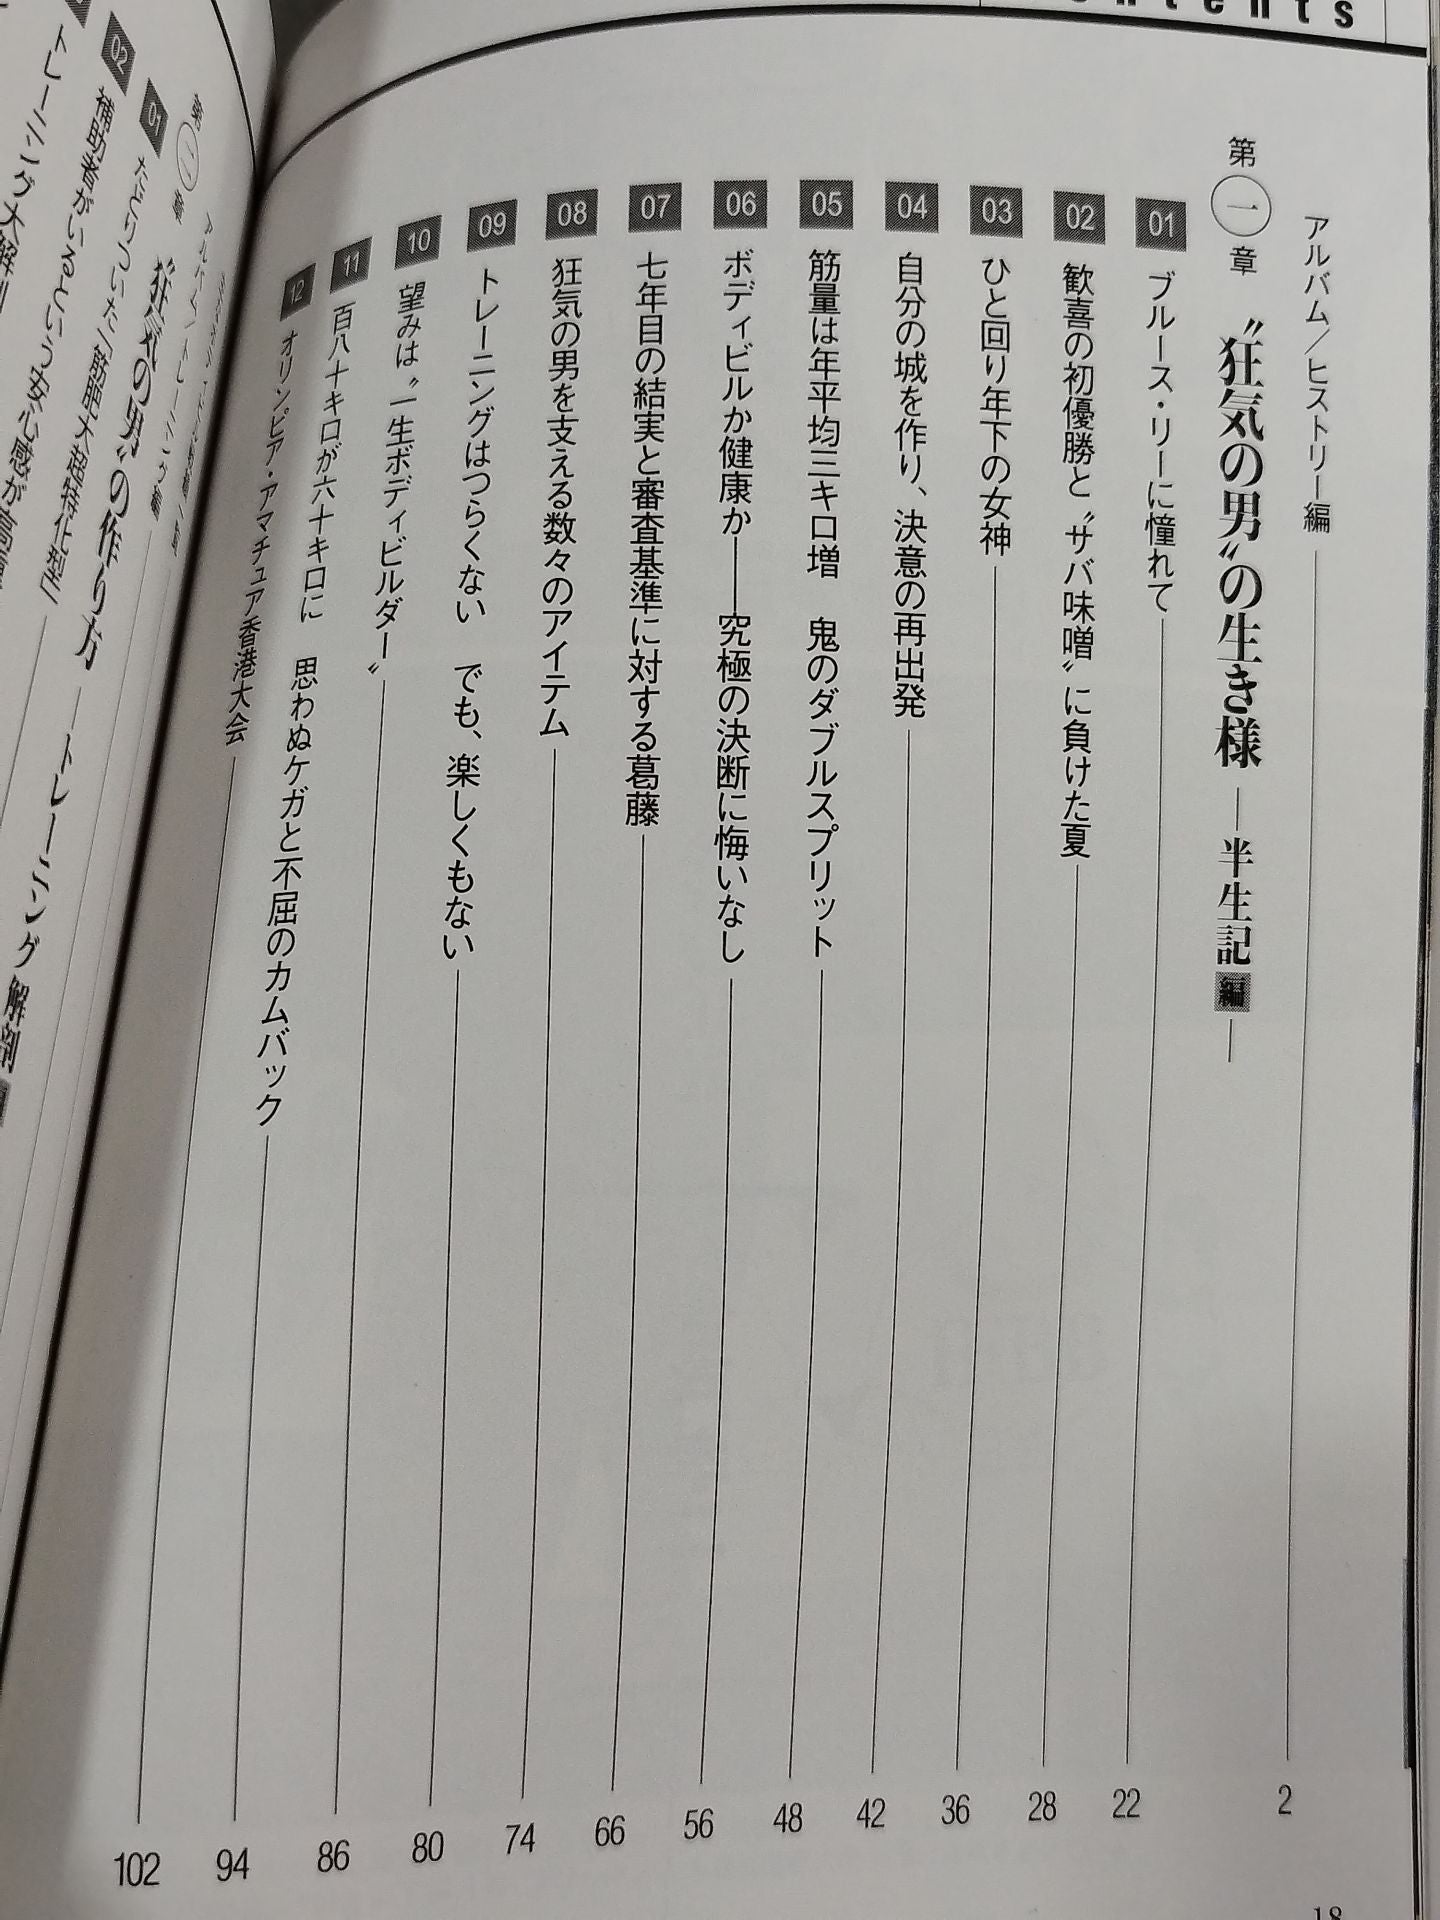 ntents
アルバム／ヒストリー編 2
第一章 〝狂気の男〟の生き様 ― 半生記 編
01 ブルース・リーに憧れて 22
02 歓喜の初優勝と〝サバ味噌〟に負けた夏 28
03 ひと回り年下の女神 36
04 自分の城を作り、決意の再出発 42
05 筋量は年平均三キロ増　鬼のダブルスプリット 48
06 ボディビルか健康か――究極の決断に悔いなし 56
07 七年目の結実と審査基準に対する葛藤 66
08 狂気の男を支える数々のアイテム 74
09 トレーニングはつらくない　でも、楽しくもない 80
10 望みは〝一生ボディビルダー〟 86
11 百八十キロが六十キロに　思わぬケガと不屈のカムバック 94
12 オリンピア・アマチュア香港大会 102
18
アルバム／トレーニング編
第二章 〝狂気の男〟の作り方 ― トレーニング解剖
01 たどりついた「筋肥大超特化型」
02 補助者がいるという安心感が高重
トレーニング大解剖